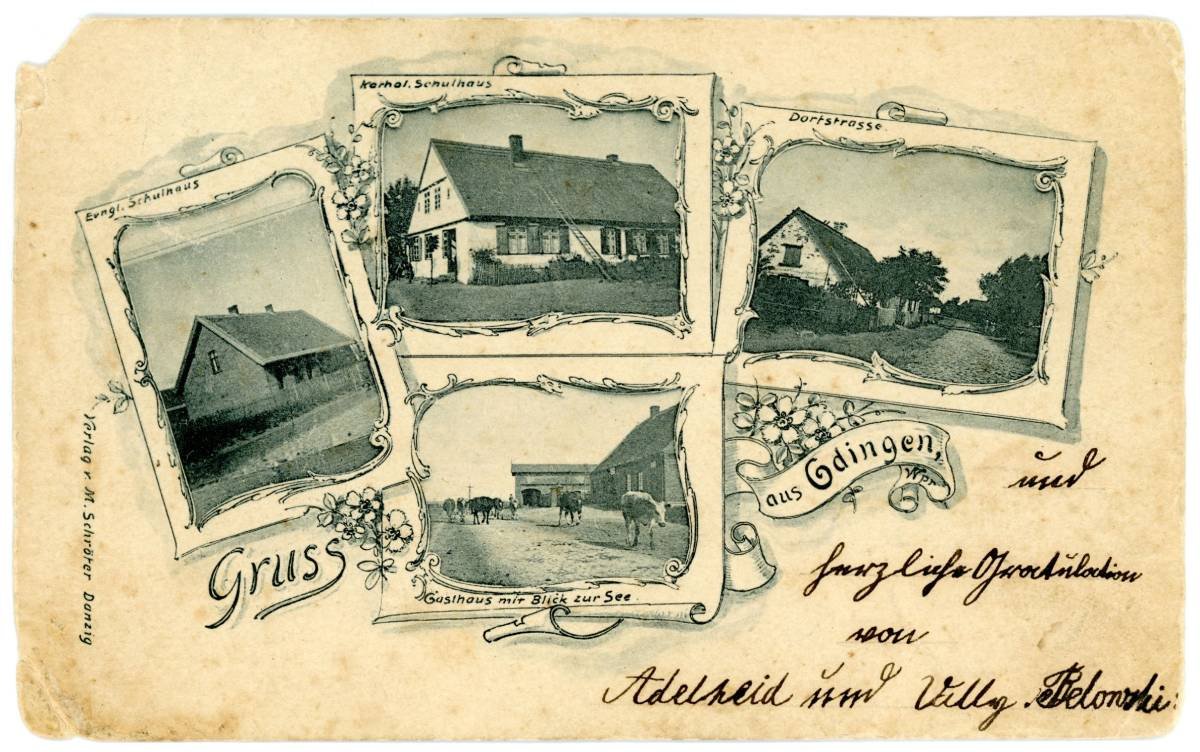 Kathol. Schulhaus
Dorfstrasse.
Evngl. Schulhaus
Gasthaus mit Blick zur See.
Gruss
aus Gdingen,
Wpr.
Verlag v. M. Schröter Danzig
und
herzliche Gratulation
von
Adelheid und Willy